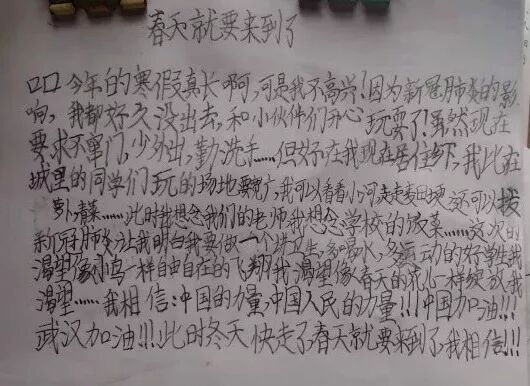 春天就要来到了
口口今年的寒假真长啊,可是我不高兴!因为新冠肺炎的影
响,我都好久没出去,和小伙伴们开心玩耍了!虽然现在
要求不串门,少外出,勤洗手……但好在我现在居住乡下,我比在
城里的同学们玩的场地要宽广,我可以看看小河走走麦田埂还可以拨
萝卜青菜……此时我想念我们的老师我想念学校的饭菜……这次的
新冠肺炎让我明白我要做一个讲卫生,多喝水,多运动的好学生我
渴望像小鸟一样自由自在的飞翔我渴望像春天的花儿一样绽放我
渴望……我相信:中国的力量,中国人民的力量!!!中国加油!!!
武汉加油!!!此时冬天快走了春天就要来到了我相信!!!